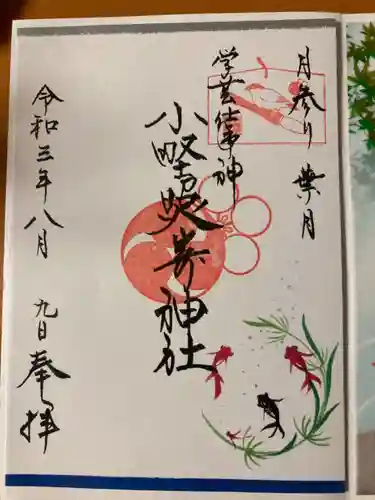 月参り 葉月
学芸仕事神
小野照崎神社
令和三年八月 九日
奉拝